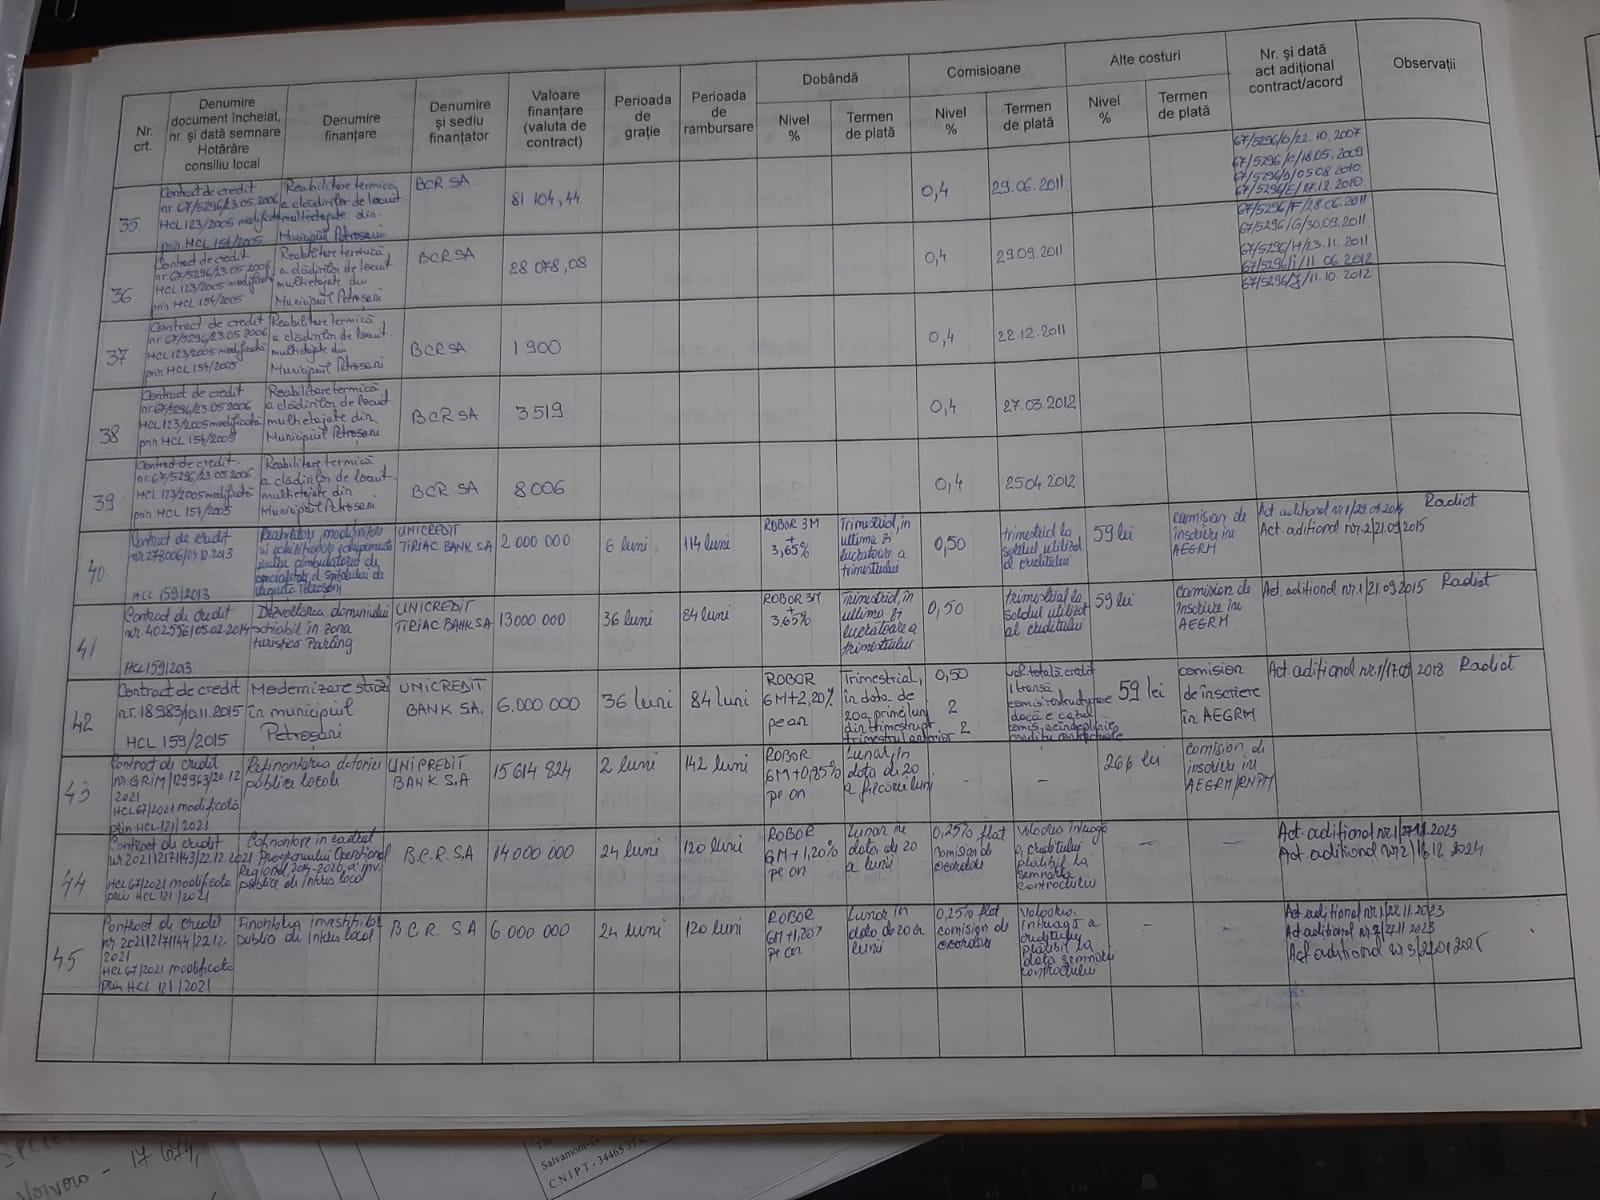 Nr. crt.
Denumire document încheiat, nr. și dată semnare Hotărâre consiliu local
Denumire finanțare
Denumire și sediu finanțator
Valoare finanțare (valuta de contract)
Perioada de grație
Perioada de rambursare
Dobândă
Nivel %
Termen de plată
Comisioane
Nivel %
Termen de plată
Alte costuri
Nivel %
Termen de plată
Nr. și dată act adițional contract/acord
Observații
35.
Contract de credit
nr 67/5296/23.05.2006
HCL 123/2005 modificată
prin HCL 154/2005
Reabilitare termică
a clădirilor de locuit
multietajate din
Municipiul Petroșani
BCR SA.
81 104,44
0,4
29.06.2011
67/5296/D/22.10.2007
67/5296/C/18.05.2009
67/5296/D/05 08 2010
67/5296/E/27.12.2010
36
Contract de credit
nr 67/5296/23 05 2006
HCL 123/2005 modificată
prin HCL 154/2005
Reabilitare termică
a clădirilor de locuit
multietajate din
Municipiul Petroșani
BCR SA
28 078,08
0,4
29.09.2011
67/5296/F/28.06.2011
67/5296/G/30.09.2011
67/5296/H/23.11.2011
67/5296/i/11 06 2012
67/5296/J/11.10.2012
37
Contract de credit
nr. 67/5296/23.05.2006
HCL 123/2005 modificată
prin HCL 154/2005
Reabilitare termică
a clădirilor de locuit
multietajate din
Municipiul Petroșani
BCR SA
1 900
0,4
22.12.2011
38
Contract de credit
nr 67/5296/23.05.2006
HCL 123/2005 modificată
prin HCL 154/2005
Reabilitare termică
a clădirilor de locuit
multietajate din
Municipiul Petroșani
BCR SA
3 519
0,4
27.03.2012
39
Contract de credit
nr. 67/5296/23 05 2006
HCL 123/2005 modificată
prin HCL 154/2005
Reabilitare termică
a clădirilor de locuit
multietajate din
Municipiul Petroșani
BCR SA
8 006
0,4
25 04 2012
40.
Contract de credit
HCL 159/2013
ambulatoriul de
specialitate al spitalului de
UNICREDIT
TIRIAC BANK SA
2 000 000
6 luni
114 luni
ROBOR 3M
+
3,65%
Trimestrial, în
ultima zi
lucrătoare a
trimestrului
0,50
trimestrial la
soldul utilizat
al creditului
59 lei
comision de
înscriere în
AEGRM
Act aditional nr 2/21.09.2015
Radiat
41
Contract de credit
nr. 402556/05.02.2014
HCL 159/2013
Dezvoltarea domeniului
schiabil în zona
turistică Parâng
UNICREDIT
TIRIAC BANK SA
13000 000
36 luni
84 luni
ROBOR 3M
+
3,65%
Trimestrial, în
ultima zi
lucrătoare a
trimestrului
0,50
trimestrial la
soldul utilizat
al creditului
59 lei
comision de
înscriere în
AEGRM
Act. aditional nr.1/21.09.2015
Radiat
42
Contract de credit
HCL 159/2015
Modernizare străzi
în municipiul
Petroșani
UNICREDIT
BANK SA.
6.000 000
36 luni
84 luni
ROBOR
6M+2,20%
pe an
Trimestrial,
în data de
20 a primei luni
din trimestrul pt
trimestrul anterior
0,50
2
2
val. totală credit
1 tranșă
comis. restructurare
dacă e cazul
59 lei
comision
de înscriere
în AEGRM
Radiat
43
Contract de credit
nr. GRIM/129963/20.12
2021
HCL 67/2021 modificată
prin HCL 121/2021
Refinanțarea datoriei
publice locale
UNICREDIT
BANK S.A
15 614 824
2 luni
142 luni
ROBOR
6M+0,85%
pe an
Lunar, în
data de 20
a fiecărei luni
-
-
266 lei
comision de
înscriere în
AEGRM/RNPM
44
Contract de credit
nr 20211217143/22.12.2021
HCL 67/2021 modificată
prin HCL 121/2021
Cofinanțare în cadrul
Programului Operațional
Regional 2014-2020 a inv.
publice de interes local
B.C.R. S.A
14 000 000
24 luni
120 luni
ROBOR
6M+1,20%
pe an
Lunar în
data de 20
a lunii
0,25% flat
comision de
acordare
Valoarea întreagă
a creditului
plătibil la
semnarea
contractului
-
-
Act. adițional nr.1/27.11.2023
Act. adițional nr 2/16.12.2024
45
Contract de credit
nr. 20211217144/22.12.
2021
HCL 67/2021 modificată
prin HCL 121/2021
Finanțarea investițiilor
publice de interes local
B.C.R. S.A
6 000 000
24 luni
120 luni
ROBOR
6M+1,20%
pe an
Lunar în
data de 20 a
lunii
0,25% flat
comision de
acordare
Valoarea
întreagă a
creditului
plătibil la
data semnării
contractului
-
-
Act adițional nr.1/22.11.2023
Act adițional nr.2/27.11 2023
- 17 674,
Salvamont-
C.N.I.P.T - 34465.37